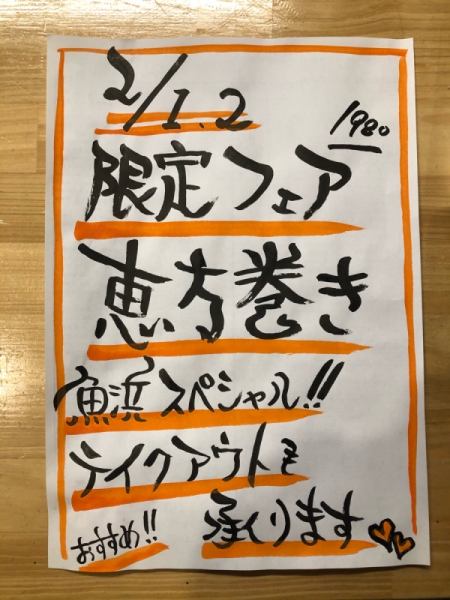 2/1.2
1980
限定フェア
恵方巻き
魚浜スペシャル!!
テイクアウトも
承ります
おすすめ!!